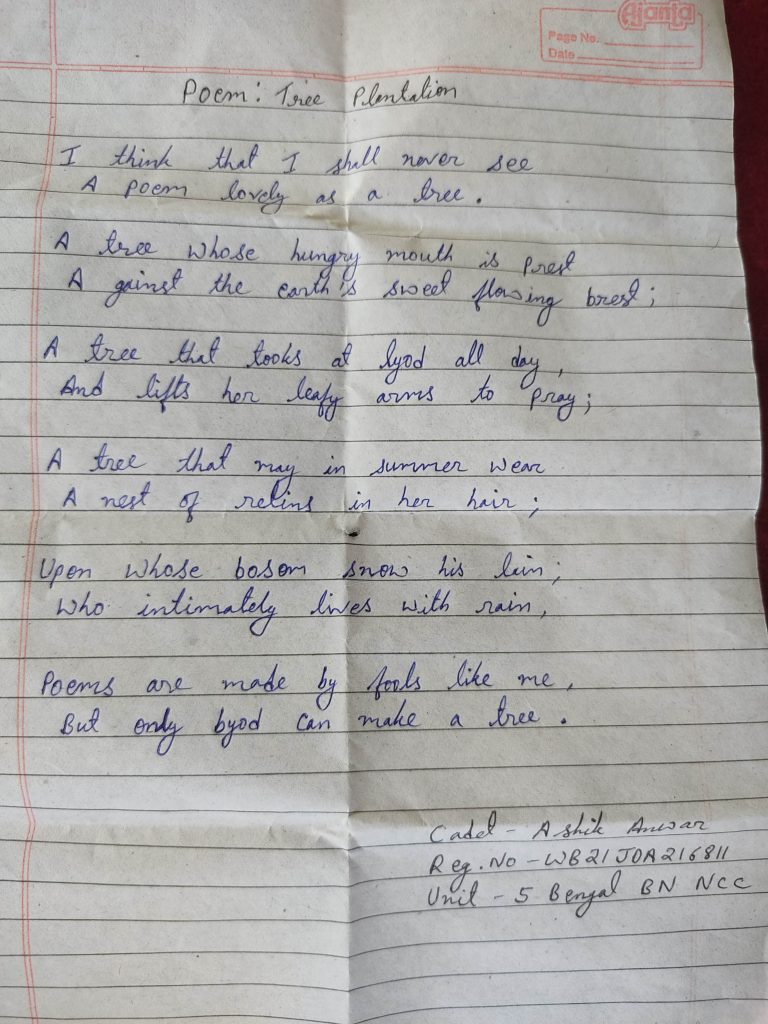 Ajanta
Page No.
Date
Poem: Tree Plantation
I think that I shall never see
A poem lovely as a tree.
A tree whose hungry mouth is prest
A gainst the earth's sweet flowing brest;
A tree that tooks at lyod all day,
And lifts her leafy arms to pray;
A tree that may in summer wear
A nest of retins in her hair;
Upon whose bosom snow his lain;
Who intimately lives with rain,
Poems are made by fools like me,
But only byod can make a tree.
Cadet - Ashik Anwar
Reg. No - WB21JDA216811
Unit - 5 Bengal BN NCC